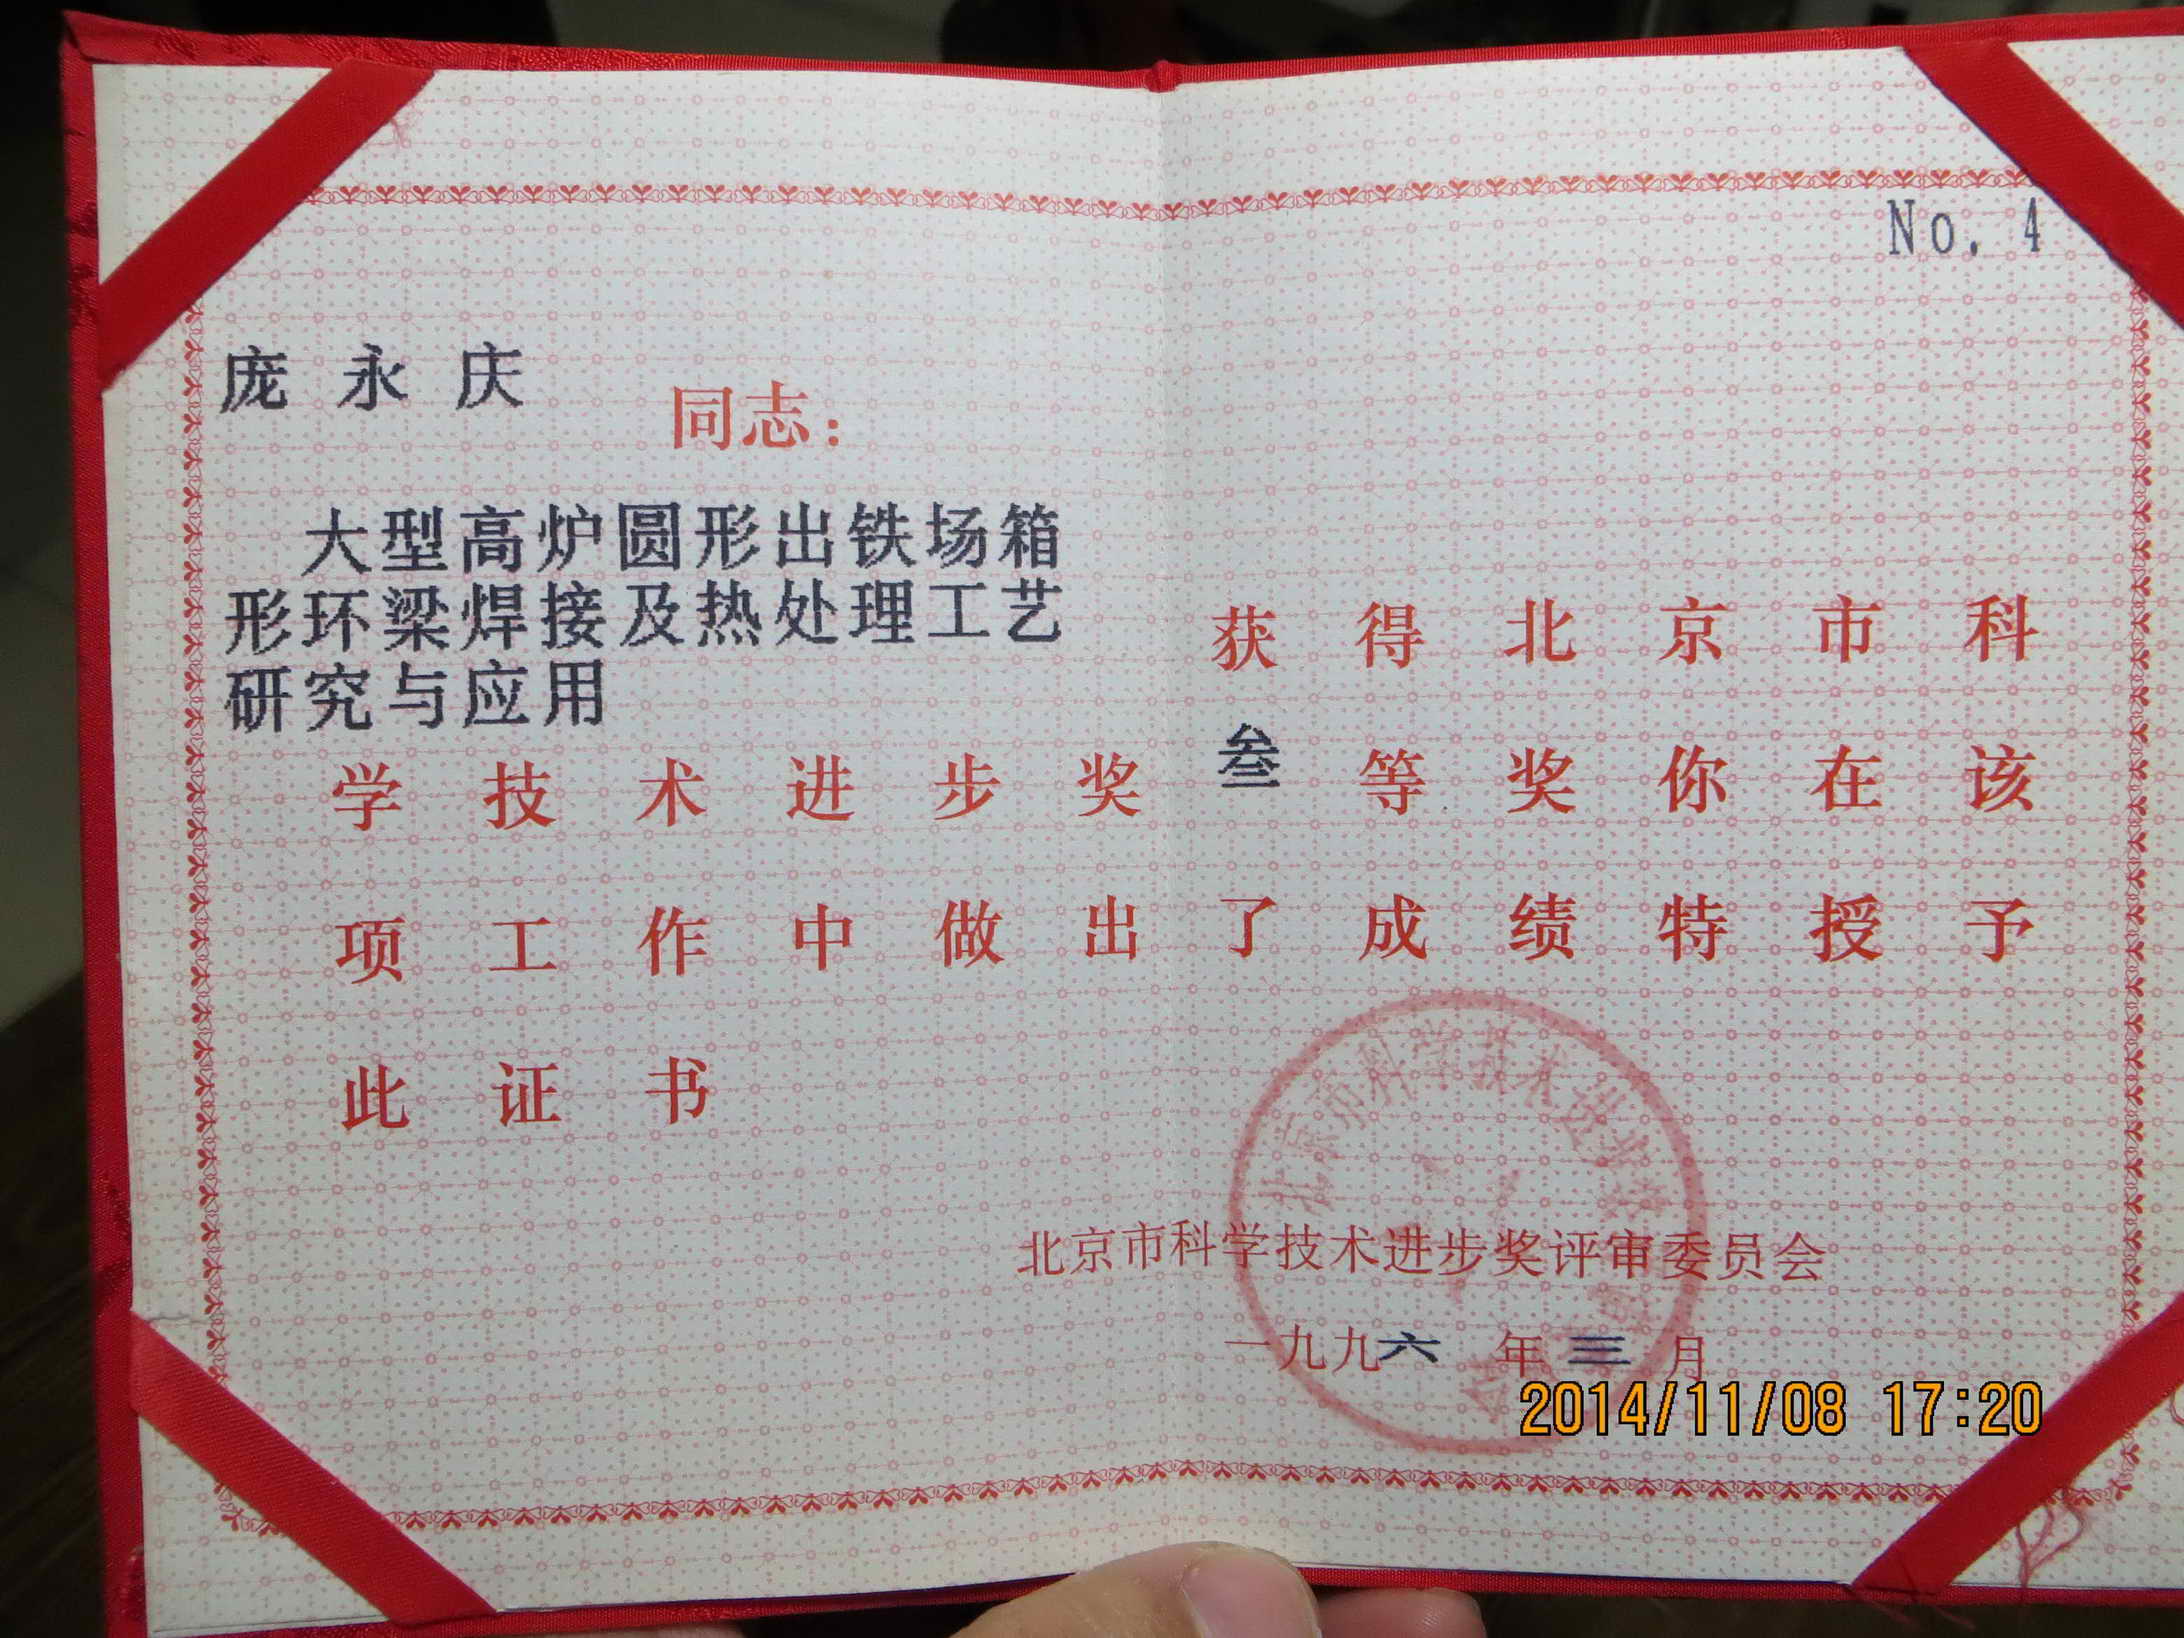 No. 4
庞永庆 同志：
大型高炉圆形出铁场箱
形环梁焊接及热处理工艺
研究与应用
获得北京市科
学技术进步奖叁等奖你在该
项工作中做出了成绩特授予
此证书
北京市科学技术进步奖
北京市科学技术进步奖评审委员会
一九九六年三月
2014/11/08 17:20